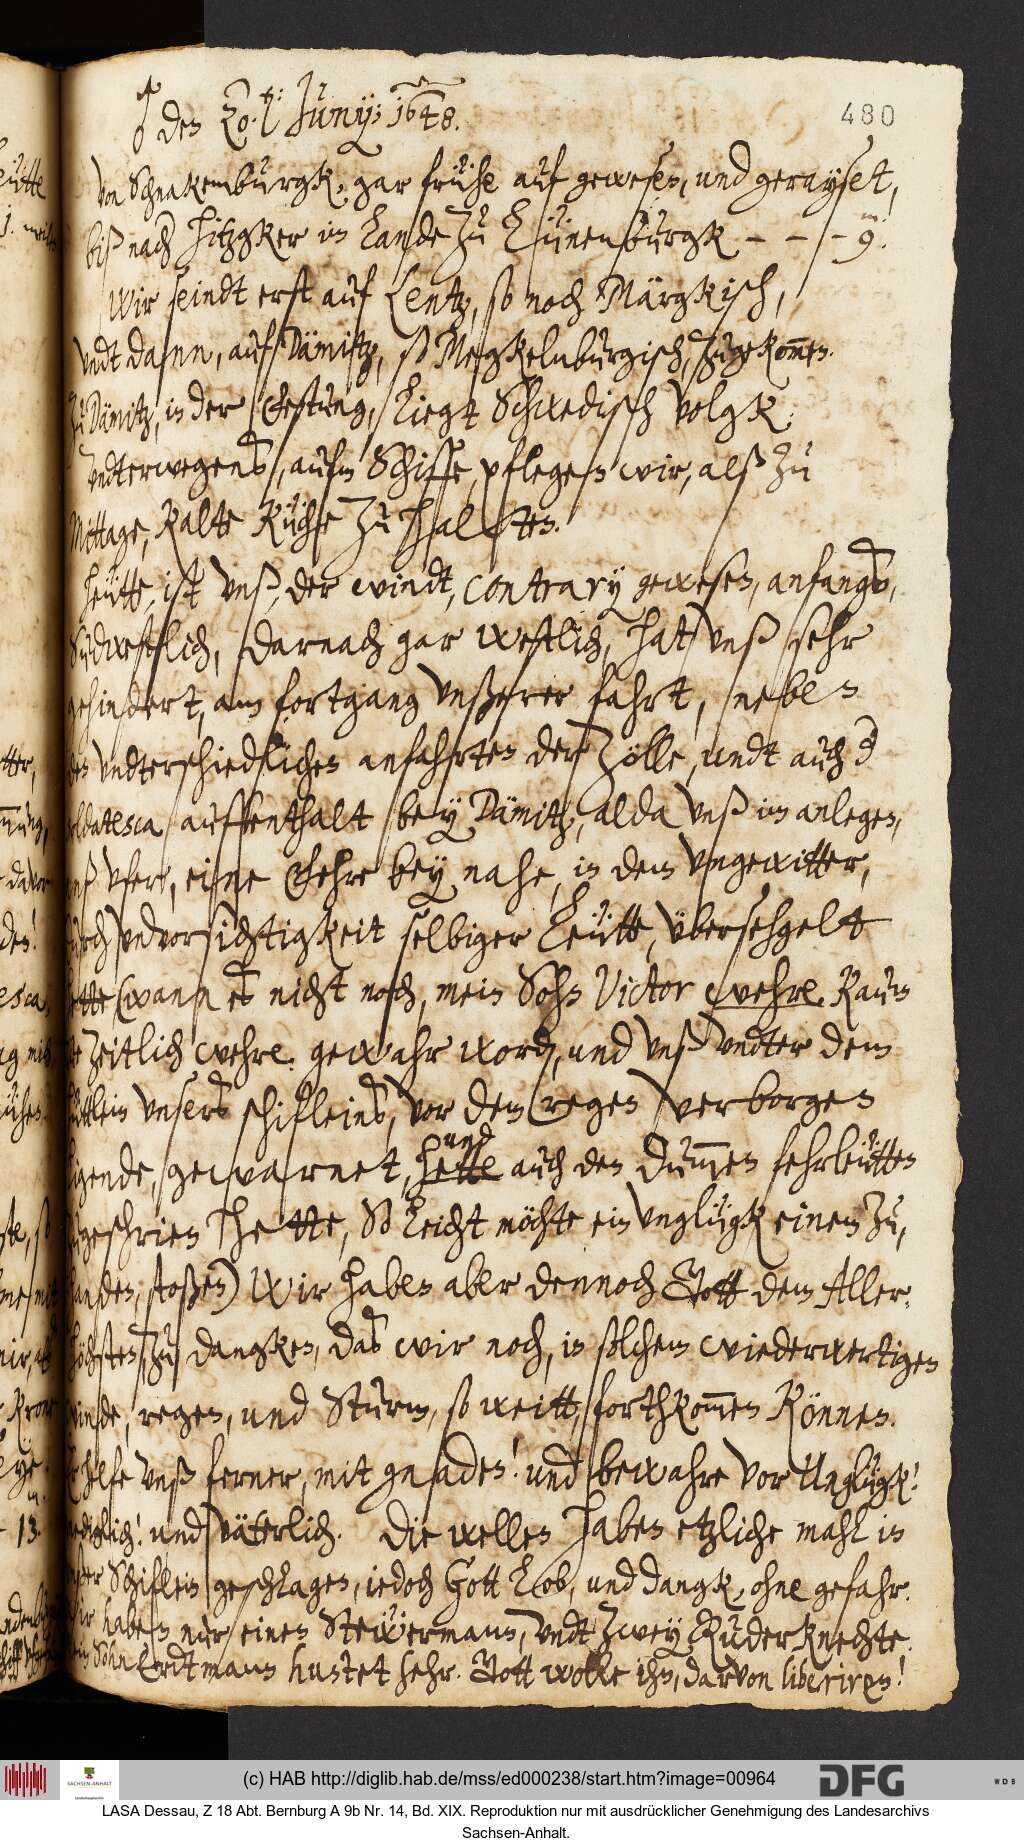 480
♂ den 20.t: Juny: 1648.
Von Schnakemburgk, gar frühe auf gewesen, und gerayset,
biß nach Hitzgker im Lande zu Lüunenburgk – – – 9. m:
Wir seindt erst auf Lentz, so noch Märgkisch,
undt dann, auf Dämitz, so Megkelnburgisch, zugekommen.
Zu Dämitz, in der Vestung, liegt Schwedisch Volgk.
Undterwegens, aufm Schiffe, pflegen wir, alß zu
Mittage, kalte Küche zu hallten.
Heütte, ist unß, der windt, contrary gewesen, anfangs,
Sudwestlich, darnach gar westlich, hat unß sehr
gehindert, am fortgang unßerer fahrt, neben
den undterschiedlichen anfahrten der Zölle, undt auch d
soldatesca auffenthalt bey Dämitz, alda unß im anlegen,
anß ufer, eine Fehre bey nahe, in dem ungewitter,
durch unvorsichtigkeit selbiger Leütte, übersehgelt
hette (wann es nicht noch, mein Sohn Victor wehre. Kaum
zeitlich wehre. gewahr word, und unß undter dem
hüttlein unsers schifleins, vor dem regen verborgen
ligende, gewarnet, hette und auch den dummen fehrleütten
zugeschrien hette, So leicht möchte ein unglügk einem zu,
handen, stoßen) Wir haben aber dennoch Gott dem Aller-
höchsten, zu dangken, das wir noch, in solchem wiederwertigen
winde, regen, und Sturm, so weitt, forthkommen können.
Er helfe unß ferner, mit gnaden! und bewahre vor Unglügk!
gnediglich! und väterlich. Die wellen haben etzliche mahl in
unßer Schiflein geschlagen, iedoch Gott Lob, und dangk, ohne gefahr.
Wir haben nur einen Steüermann, undt zwey Ruderknechte.
Mein Sohn Erdtmann hustet sehr. Gott wolle ihn, darvon liberiren!
(c) HAB http://diglib.hab.de/mss/ed000238/start.htm?image=00964
SACHSEN-ANHALT
DFG
WDB
LASA Dessau, Z 18 Abt. Bernburg A 9b Nr. 14, Bd. XIX. Reproduktion nur mit ausdrücklicher Genehmigung des Landesarchivs
Sachsen-Anhalt.